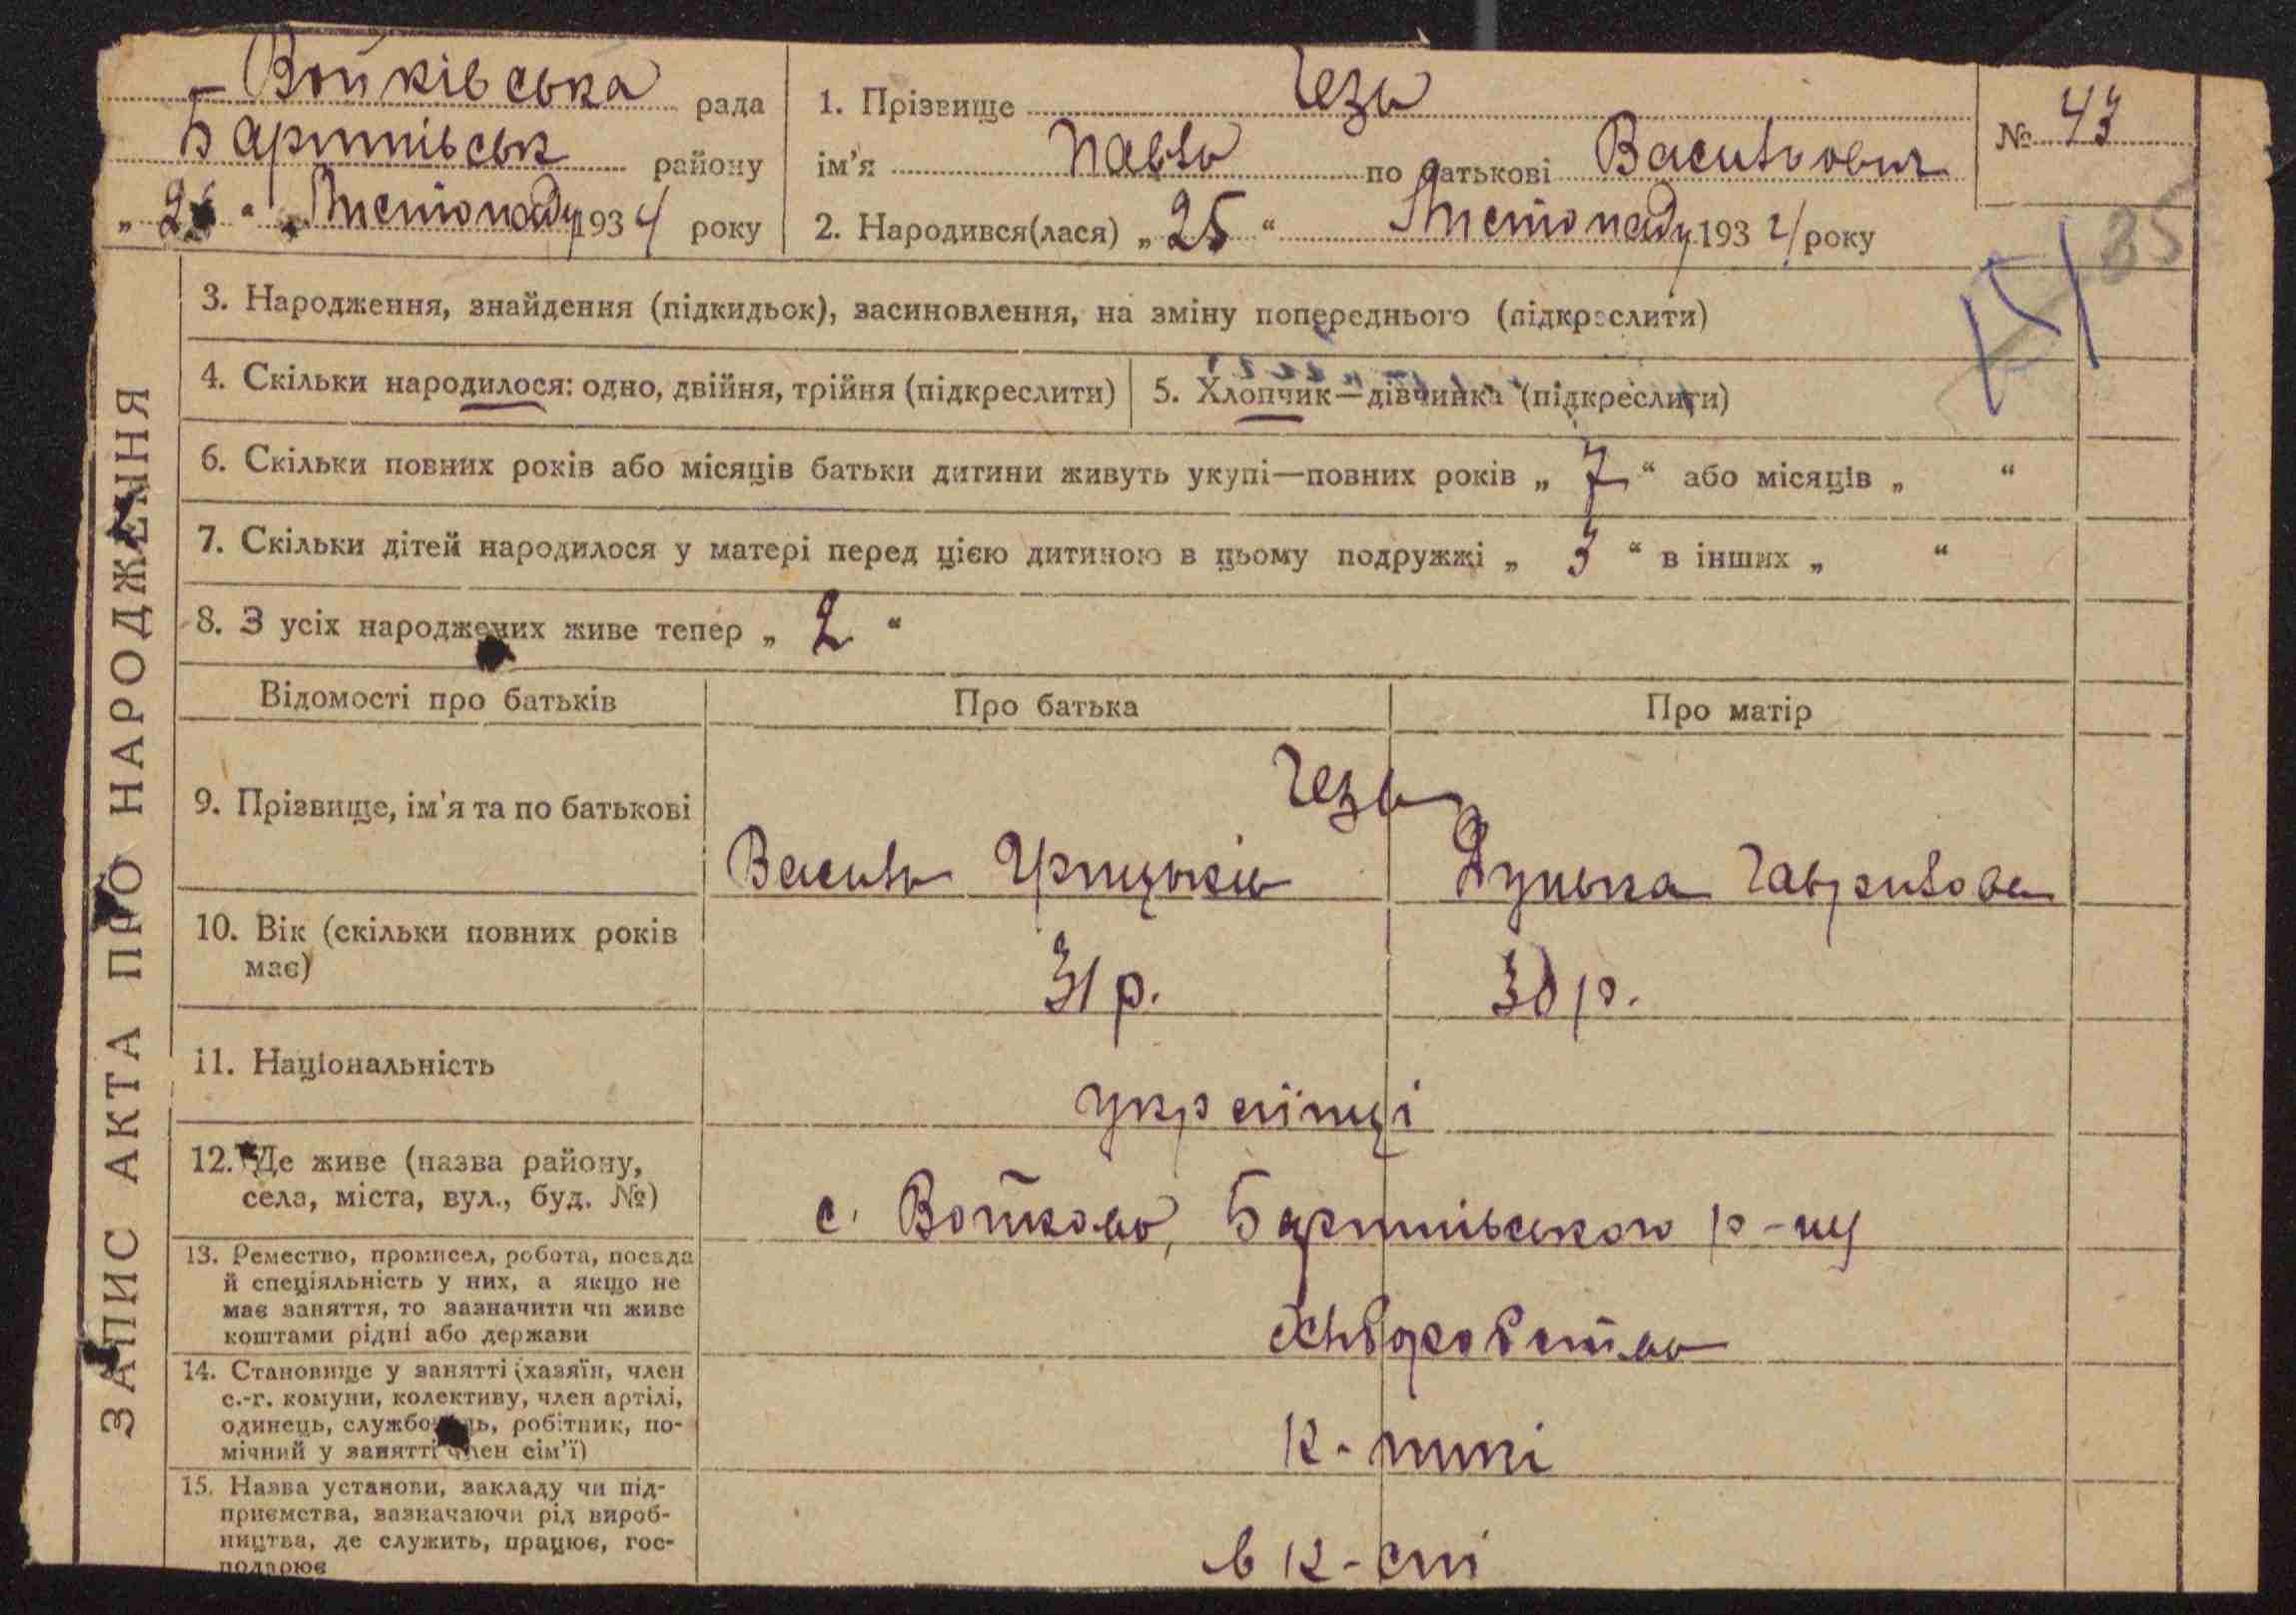 Войківська рада
Баришівськ району
„ 26 “ Листопаду 1934 року
1. Прізвище Гезь
ім'я Павло по батькові Васильович
2. Народився(лася) „ 25 “ Листопаду 1934 року
№ 43
35
3. Народження, знайдення (підкидьок), засиновлення, на зміну попереднього (підкреслити)
4. Скільки народилося: одно, двійня, трійня (підкреслити)
5. Хлопчик—дівчинка (підкреслити)
6. Скільки повних років або місяців батьки дитини живуть укупі—повних років „ 7 “ або місяців „ “
7. Скільки дітей народилося у матері перед цією дитиною в цьому подружжі „ 3 “ в інших „ “
8. З усіх народжених живе тепер „ 2 “
Відомості про батьків
Про батька
Про матір
9. Прізвище, ім'я та по батькові
Гезь
Василь Грицьків
Дунька Гаврилова
10. Вік (скільки повних років
має)
31 р.
30 р.
11. Національність
українці
12. Де живе (назва району,
села, міста, вул., буд. №)
с. Войково, Баришівського р-ну
13. Ремество, промисел, робота, посада
й спеціяльність у них, а якщо не
має заняття, то зазначити чи живе
коштами рідні або держави
хліборобство
14. Становище у занятті (хазяїн, член
с.-г. комуни, колективу, член артілі,
одинець, службовець, робітник, по-
мічний у занятті член сім'ї)
к-ники
15. Назва установи, закладу чи під-
приємства, зазначаючи рід вироб-
ництва, де служить, працює, гос-
подарює
в к-спі
ЗАПИС АКТА ПРО НАРОДЖЕННЯ